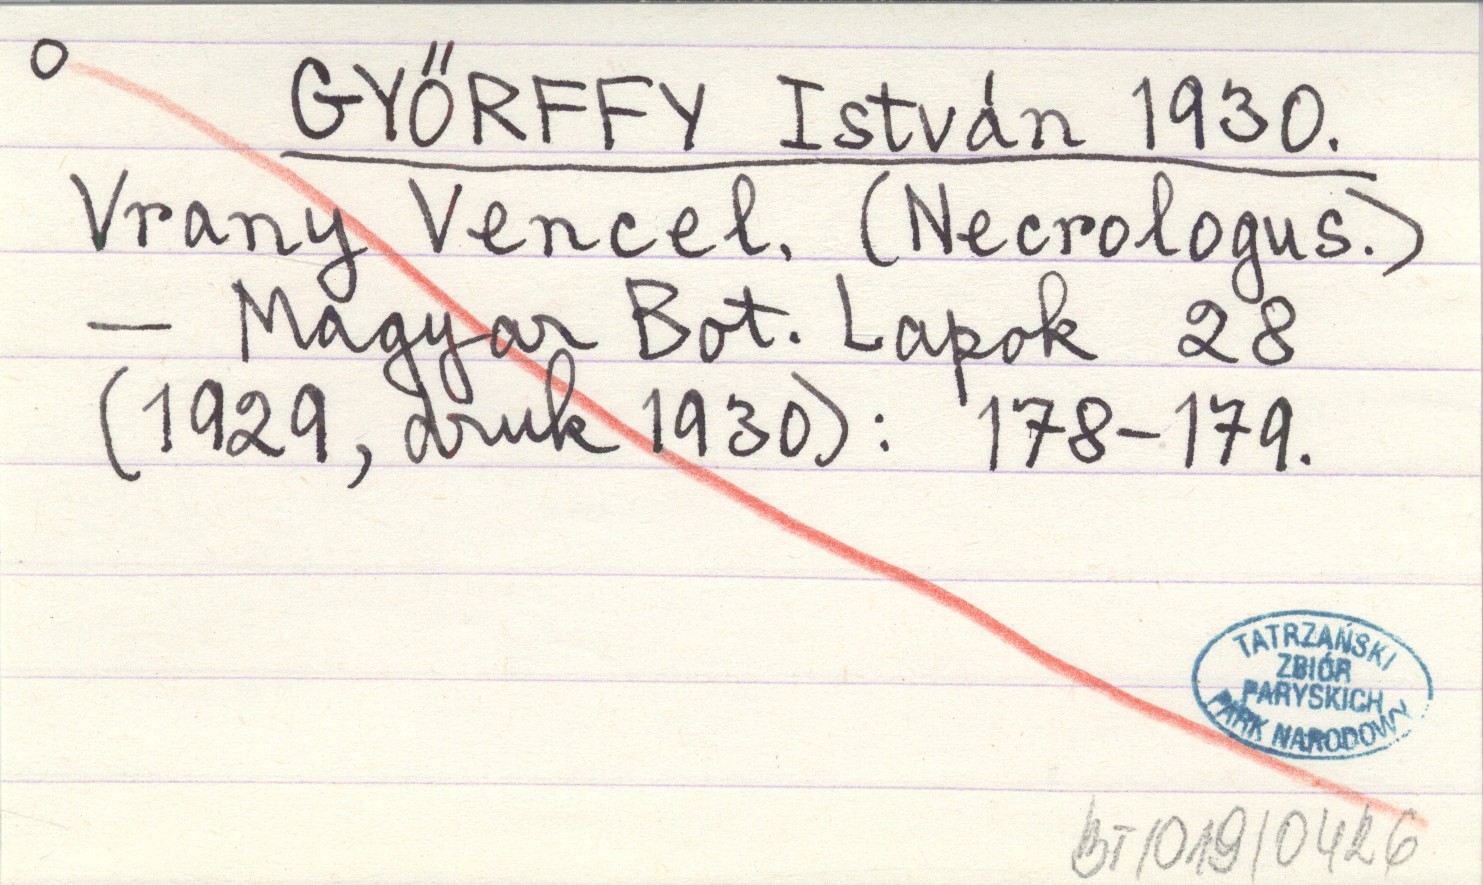 O
GYŐRFFY István 1930.
Vrany Vencel. (Necrologus.)
— Magyar Bot. Lapok 28
(1929, druk 1930): 178-179.
TATRZAŃSKI
ZBIÓR
PARYSKICH
PARK NARODOWY
BT/019/0426